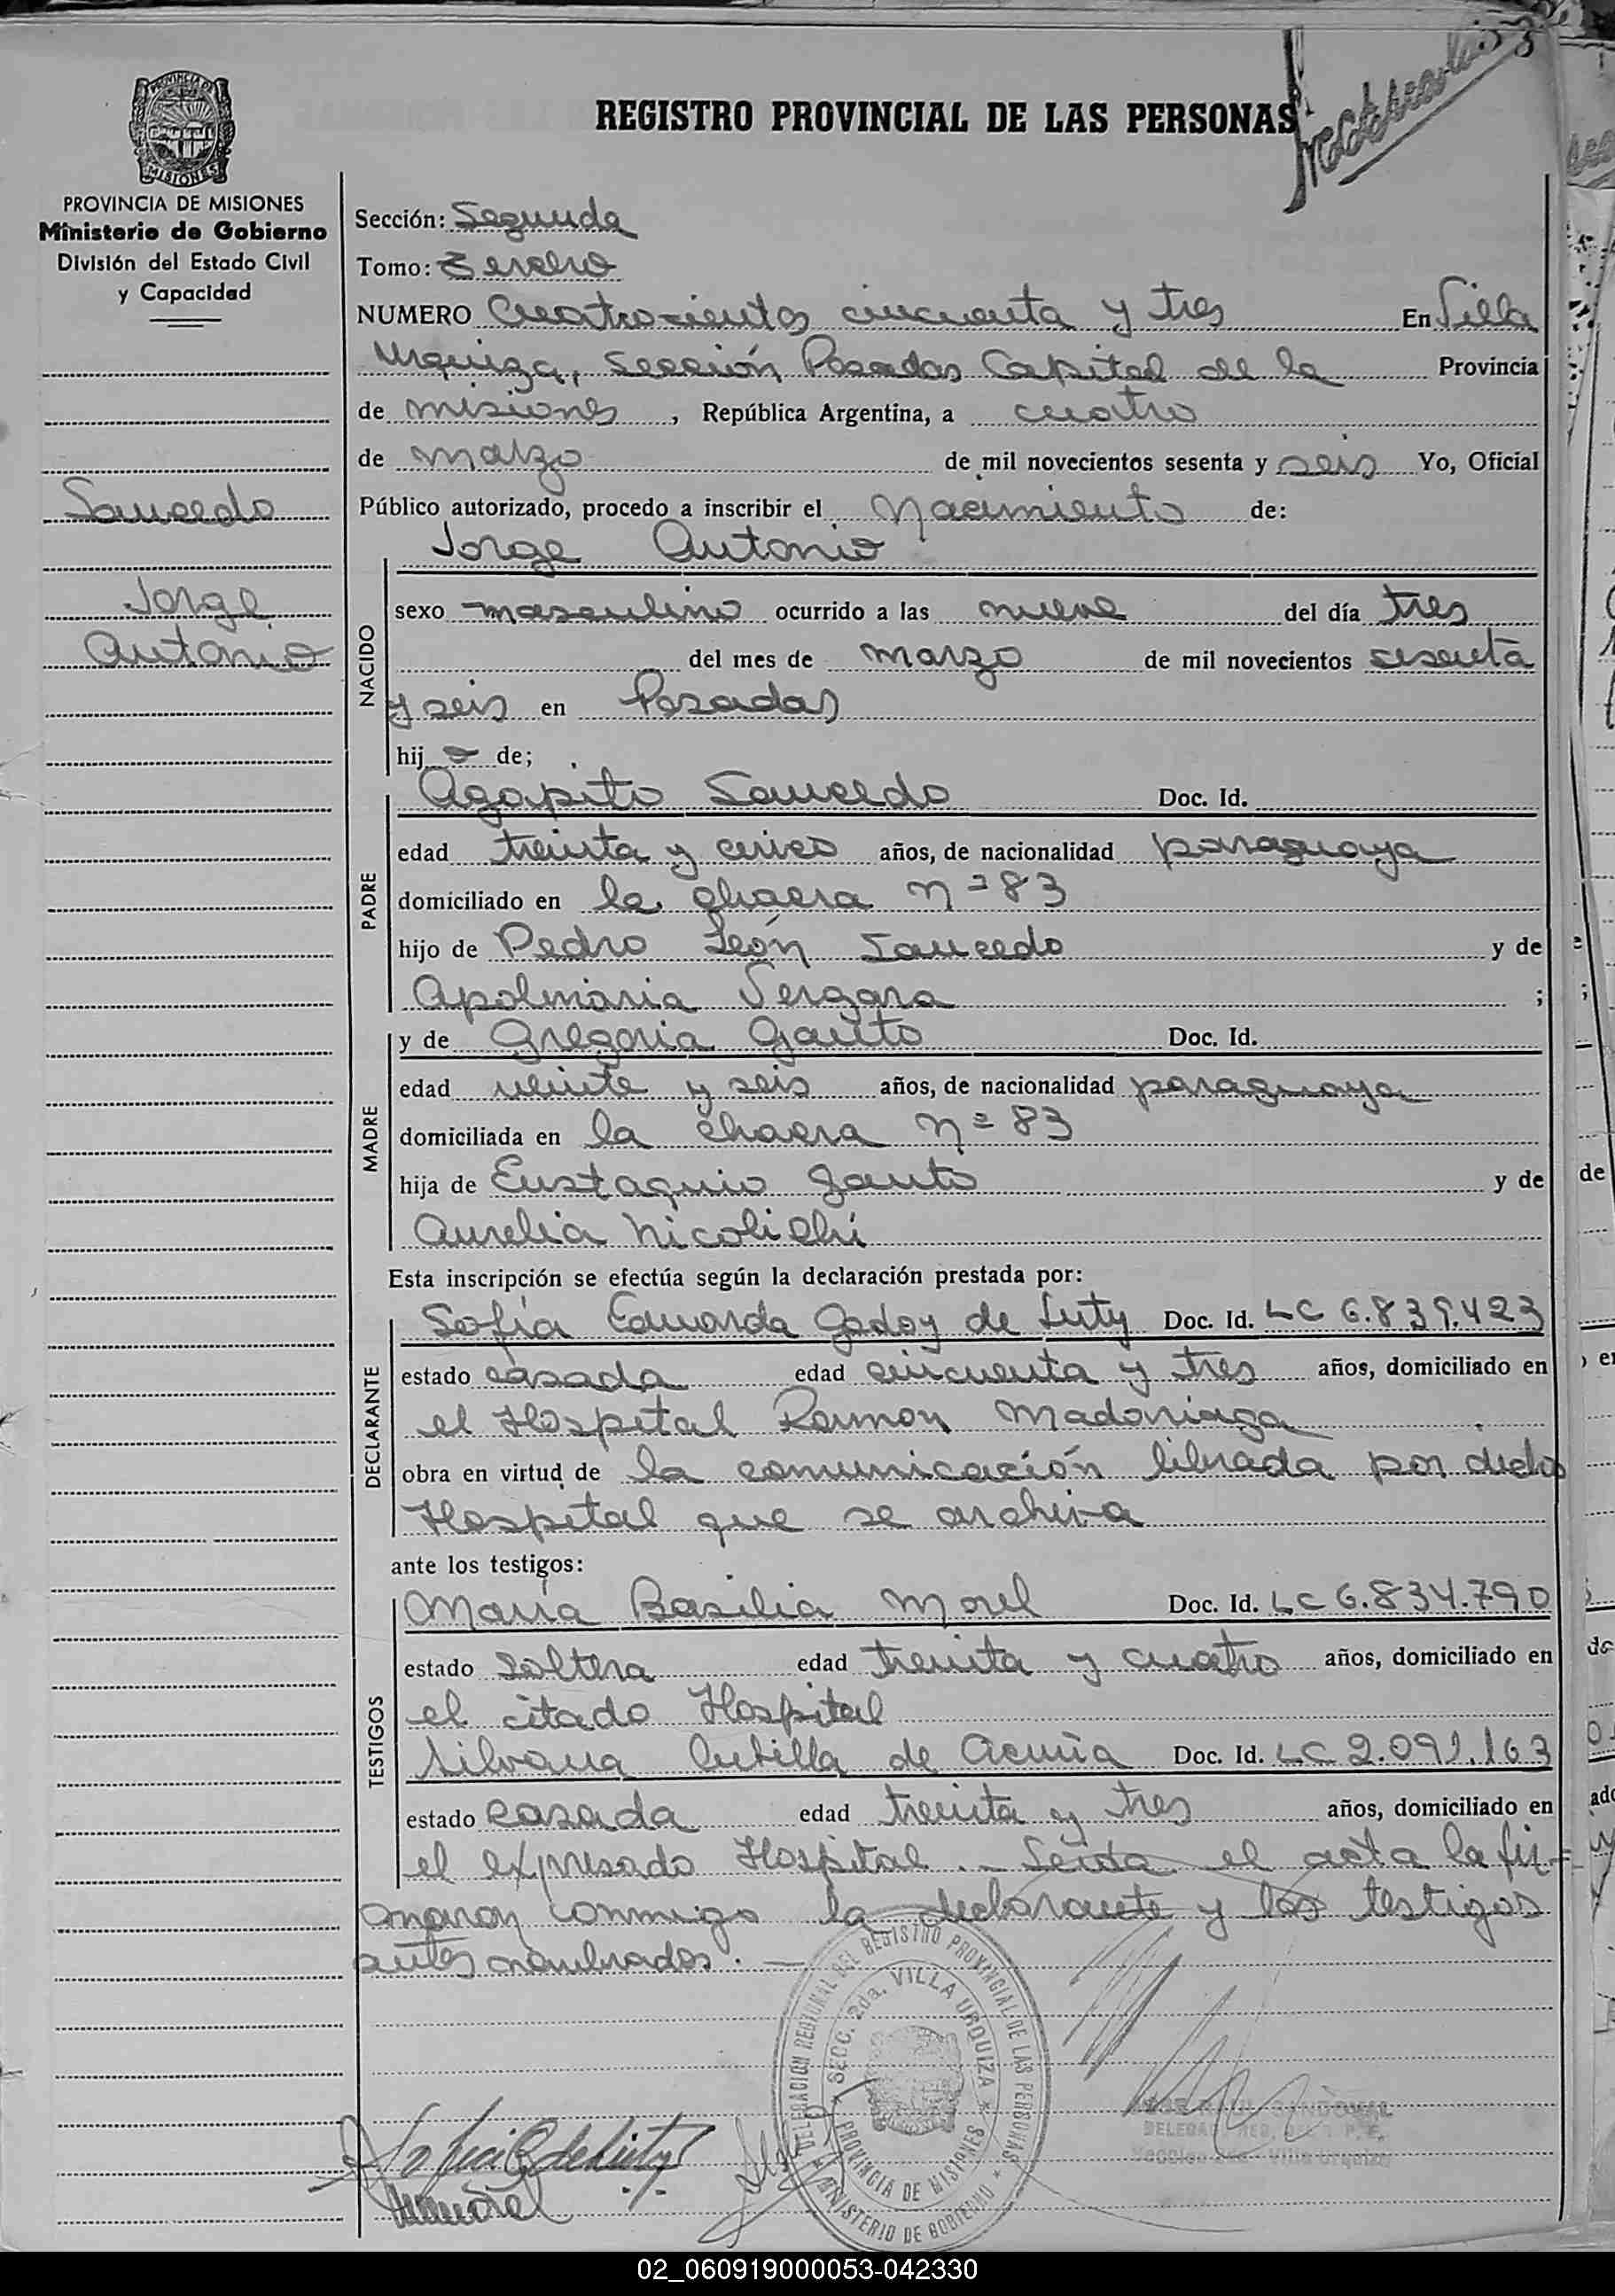 REGISTRO PROVINCIAL DE LAS PERSONAS
PROVINCIA DE MISIONES
MISIONES
PROVINCIA DE MISIONES
Ministerio de Gobierno
División del Estado Civil
y Capacidad
Saucedo
Jorge
Antonio
Sección: Segunda
Tomo: Tercero
NUMERO Cuatrocientos cincuenta y tres En Villa
Urquiza, Sección Posadas Capital de la Provincia
de misiones, República Argentina, a cuatro
de marzo de mil novecientos sesenta y seis Yo, Oficial
Público autorizado, procedo a inscribir el Nacimiento de:
Jorge Antonio
NACIDO
sexo masculino ocurrido a las nueve del día tres
del mes de marzo de mil novecientos sesenta
y seis en Posadas
hijo de;
PADRE
Agapito Saucedo Doc. Id.
edad treinta y cinco años, de nacionalidad paraguaya
domiciliado en la chacra nº 83
hijo de Pedro León Saucedo y de
Apolinaria Vergara ;
MADRE
y de Gregoria Gauto Doc. Id.
edad veinte y seis años, de nacionalidad paraguaya
domiciliada en la chacra nº 83
hija de Eustaquio Gauto y de
Aurelia Nicolichi
Esta inscripción se efectúa según la declaración prestada por:
DECLARANTE
Sofía Eduarda Godoy de Luty Doc. Id. LC 6.839.423
estado casada edad cincuenta y tres años, domiciliado en
el Hospital Ramon Madariaga
obra en virtud de la comunicación librada por dicho
Hospital que se archiva
ante los testigos:
TESTIGOS
María Basilia Morel Doc. Id. LC 6.834.790
estado soltera edad treinta y cuatro años, domiciliado en
el citado Hospital
Silvana Cubilla de Acuña Doc. Id. LC 2.091.163
estado casada edad treinta y tres años, domiciliado en
el expresado Hospital. - Leída el acta la fir-
maron conmigo la declarante y los testigos
antes nombrados. -
DELEGACION REGIONAL DEL REGISTRO PROVINCIAL DE LAS PERSONAS
SECC. 2da. VILLA URQUIZA
PROVINCIA DE MISIONES
MINISTERIO DE GOBIERNO
SANDOVAL
Sofia G de Luty
MMorel
02_060919000053-042330